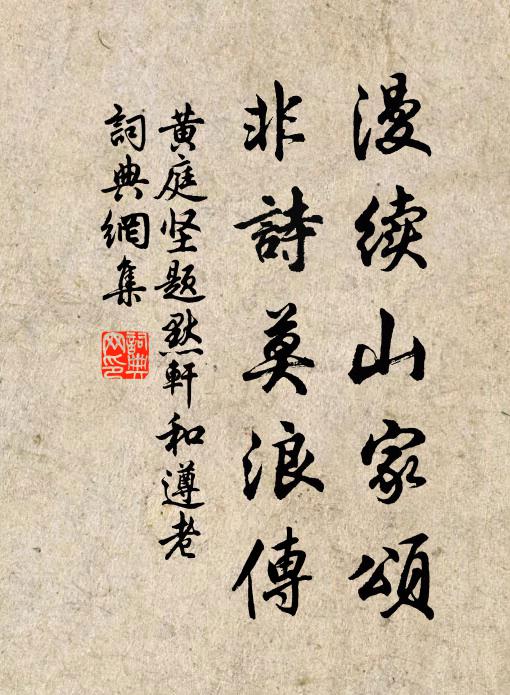 漫续山家頌
非詩莫浪傳
黄庭坚題默軒和遵老
詞典網集
詞典网印